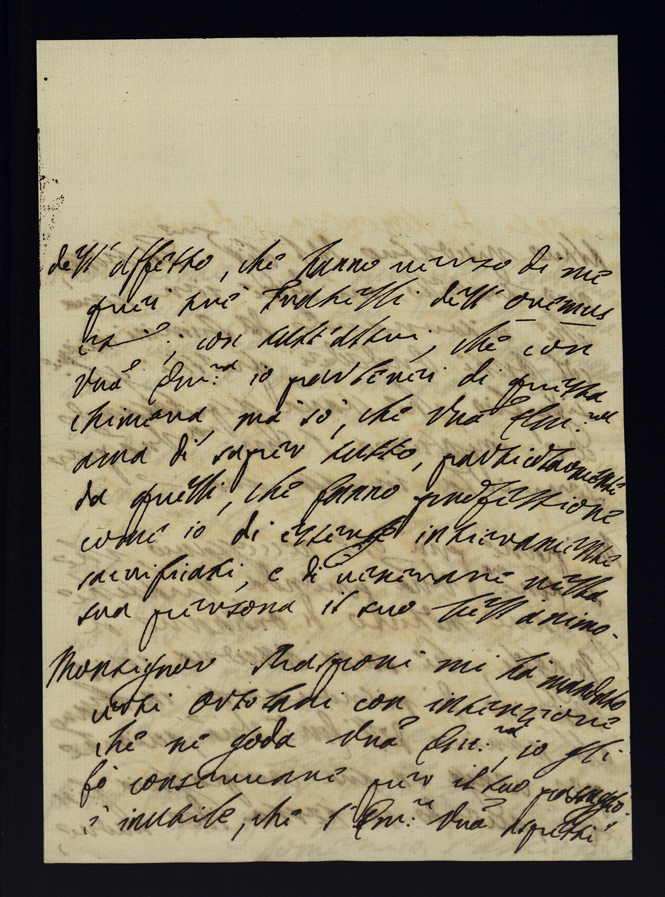 dell'affetto, che hanno verso di me
quei suoi fratelli dell'oremus
con tutt'altri, che con
Vrã Em:ᶻᵃ io parlerei di questa
chimera, ma so, che Vrã Em:ᶻᵃ
ama di saper tutto, particolarmente
da quelli, che fanno professione
come io di essergli interamente
sacrificati, e di venerare nella
sua persona il suo bell'animo.
Monsignor mi ha mandato
certi ortolani con intenzione
che ne goda Vrã Em:ᶻᵃ, io gli
fò conservare per il suo passaggio.
è inutile, che l'Em:ᶻᵃ Vrã aspetti